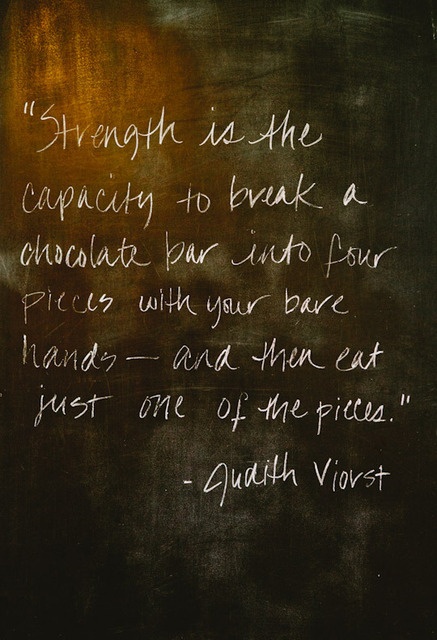 "Strength is the
capacity to break a
chocolate bar into four
pieces with your bare
hands — and then eat
just one of the pieces."
- Judith Viorst